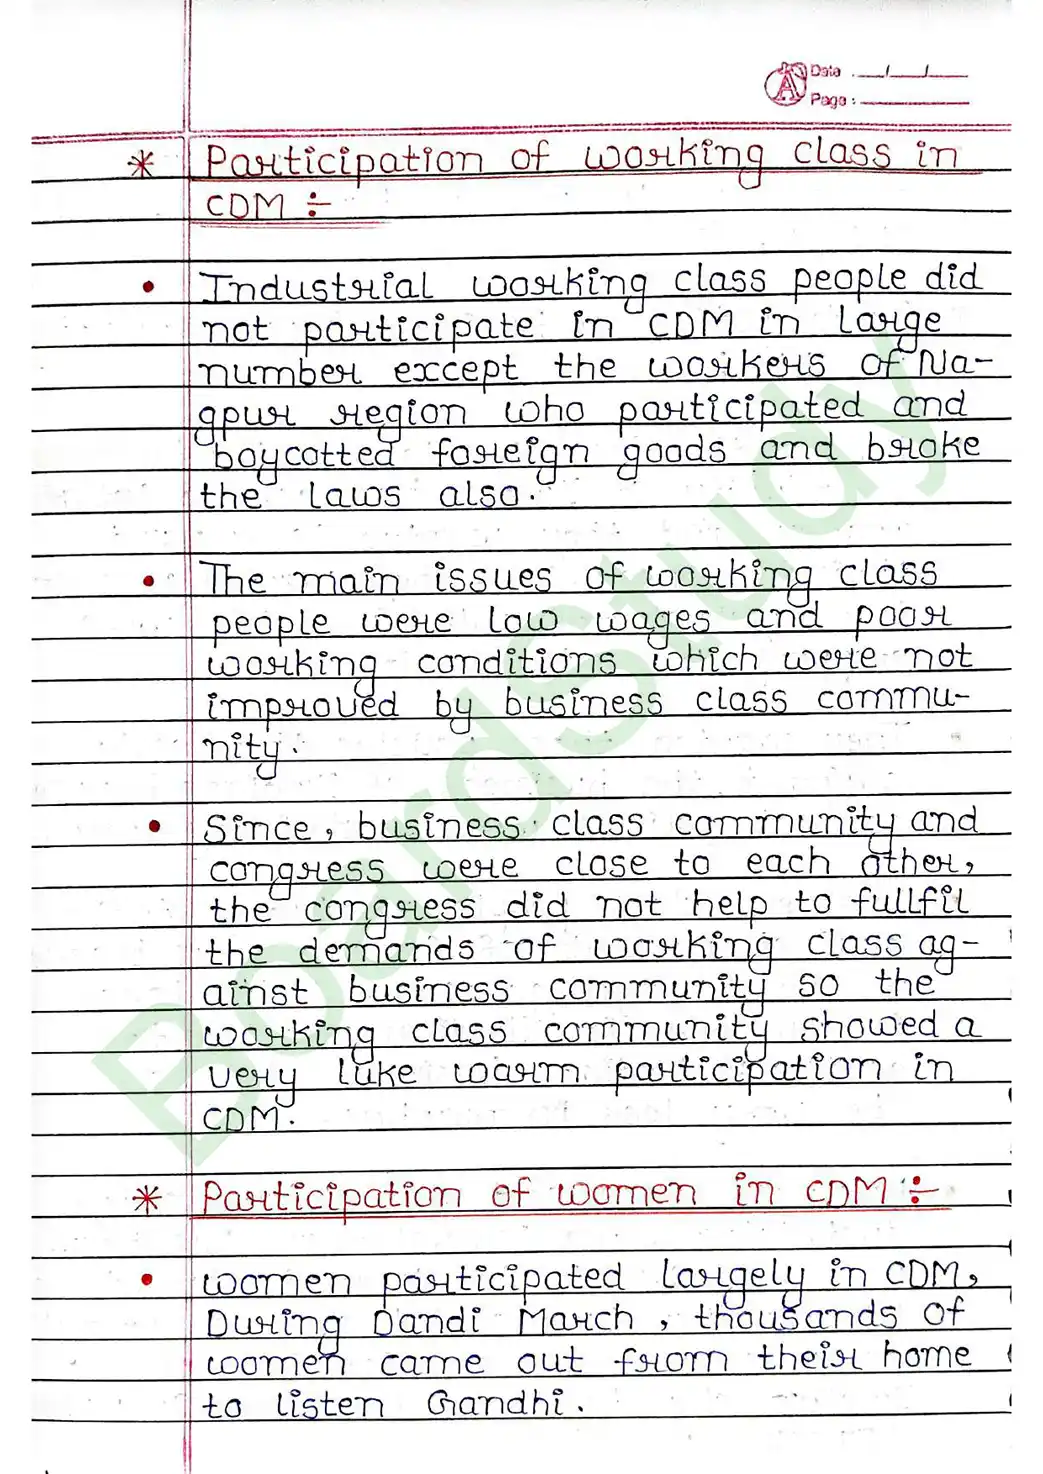 Date : __/__/__
Page : ______
* Participation of working class in
CDM ÷
• Industrial working class people did
not participate in CDM in large
number except the workers of Na-
gpur region who participated and
boycotted foreign goods and broke
the laws also.
• The main issues of working class
people were low wages and poor
working conditions which were not
improved by business class commu-
nity.
• Since, business class community and
congress were close to each other,
the congress did not help to fullfil
the demands of working class ag-
ainst business community so the
working class community showed a
very luke warm participation in
CDM.
* Participation of women in CDM ÷
• women participated largely in CDM,
During Dandi March, thousands of
women came out from their home
to listen Gandhi.
BoardStudy